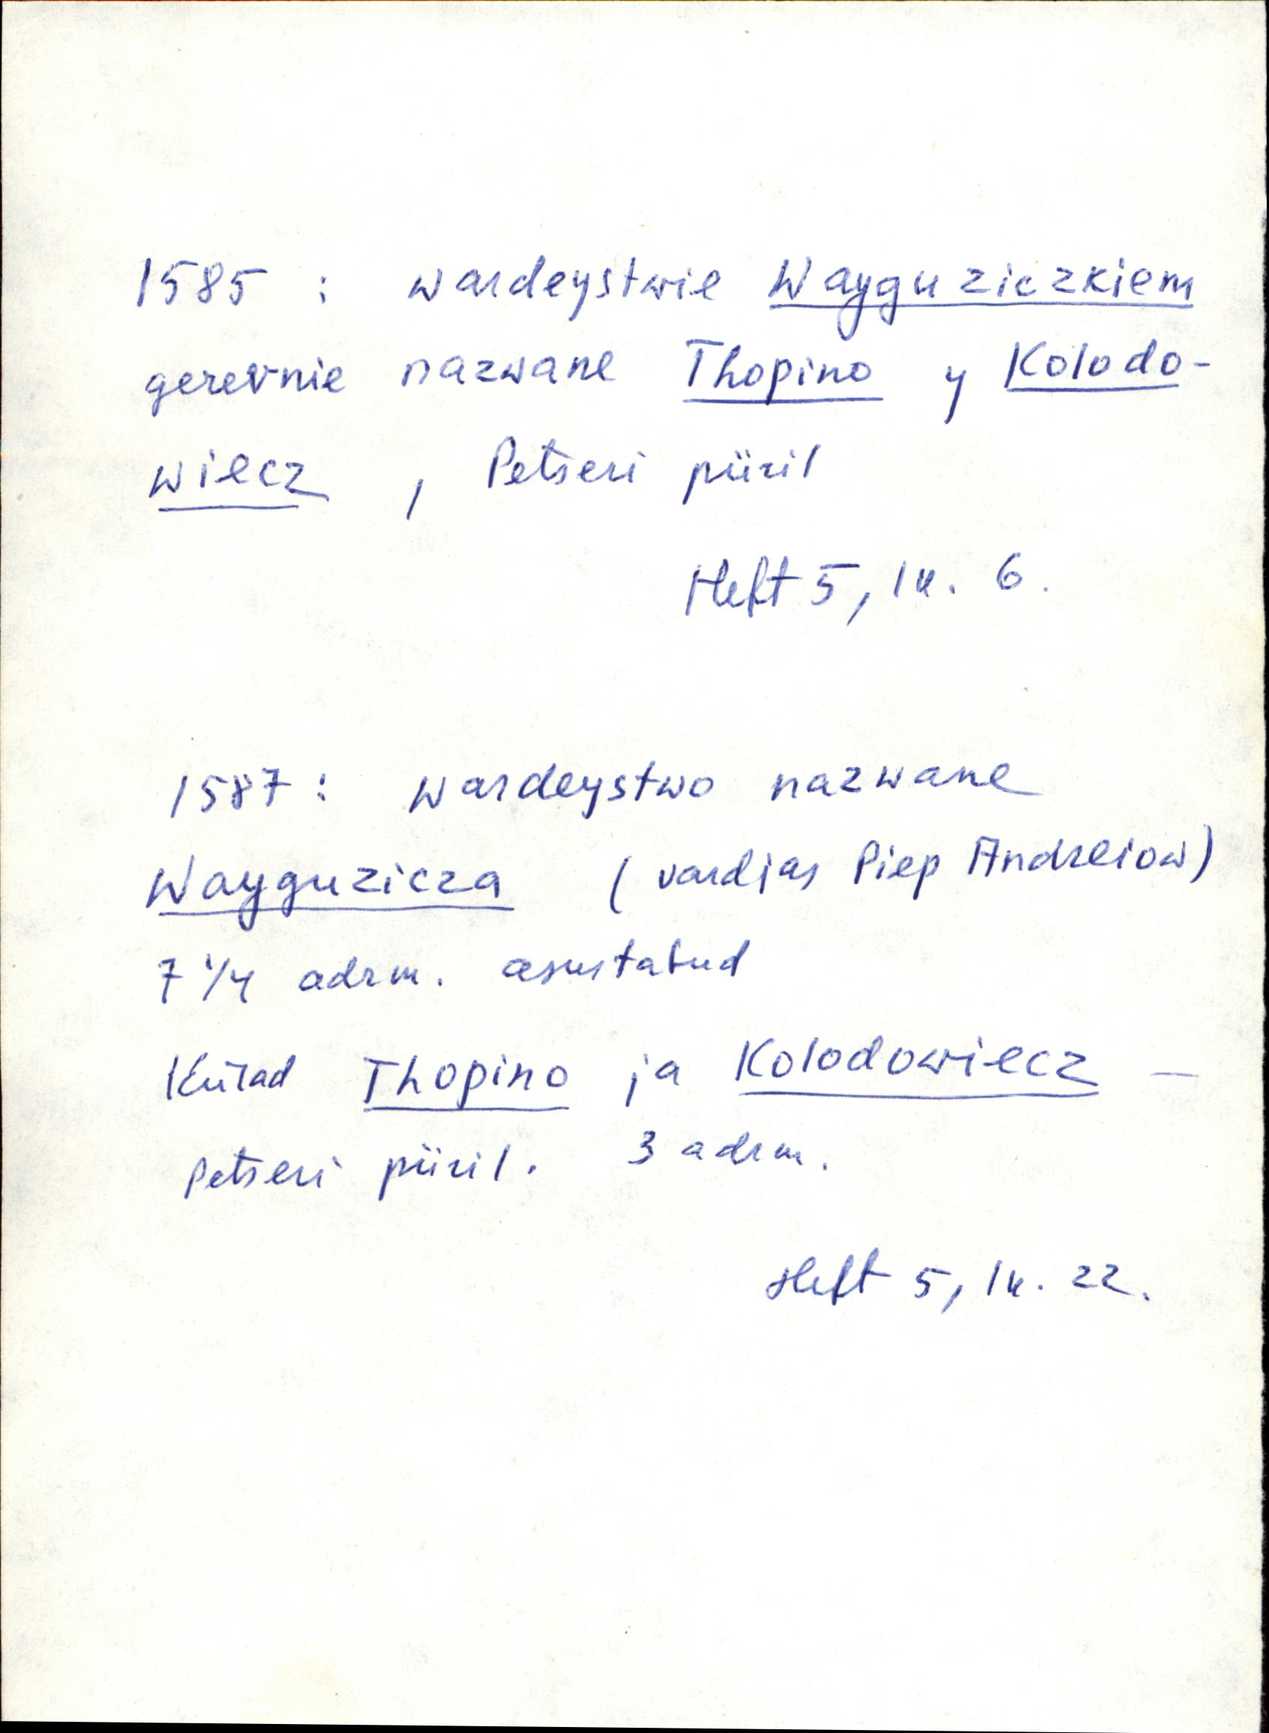 1585 : wardeystwie Wayguziczkiem
gerevnie nazwane Thopino y Kolodo-
wiecz , Petseri piiril
Heft 5, lk. 6.
1587 : wardeystwo nazwane
Wayguzicza (vardjas Piep Andrzeiow)
7 1/4 adrm. asustatud
Külad Thopino ja Kolodowiecz —
Petseri piiril. 3 adrm.
Heft 5, lk. 22.